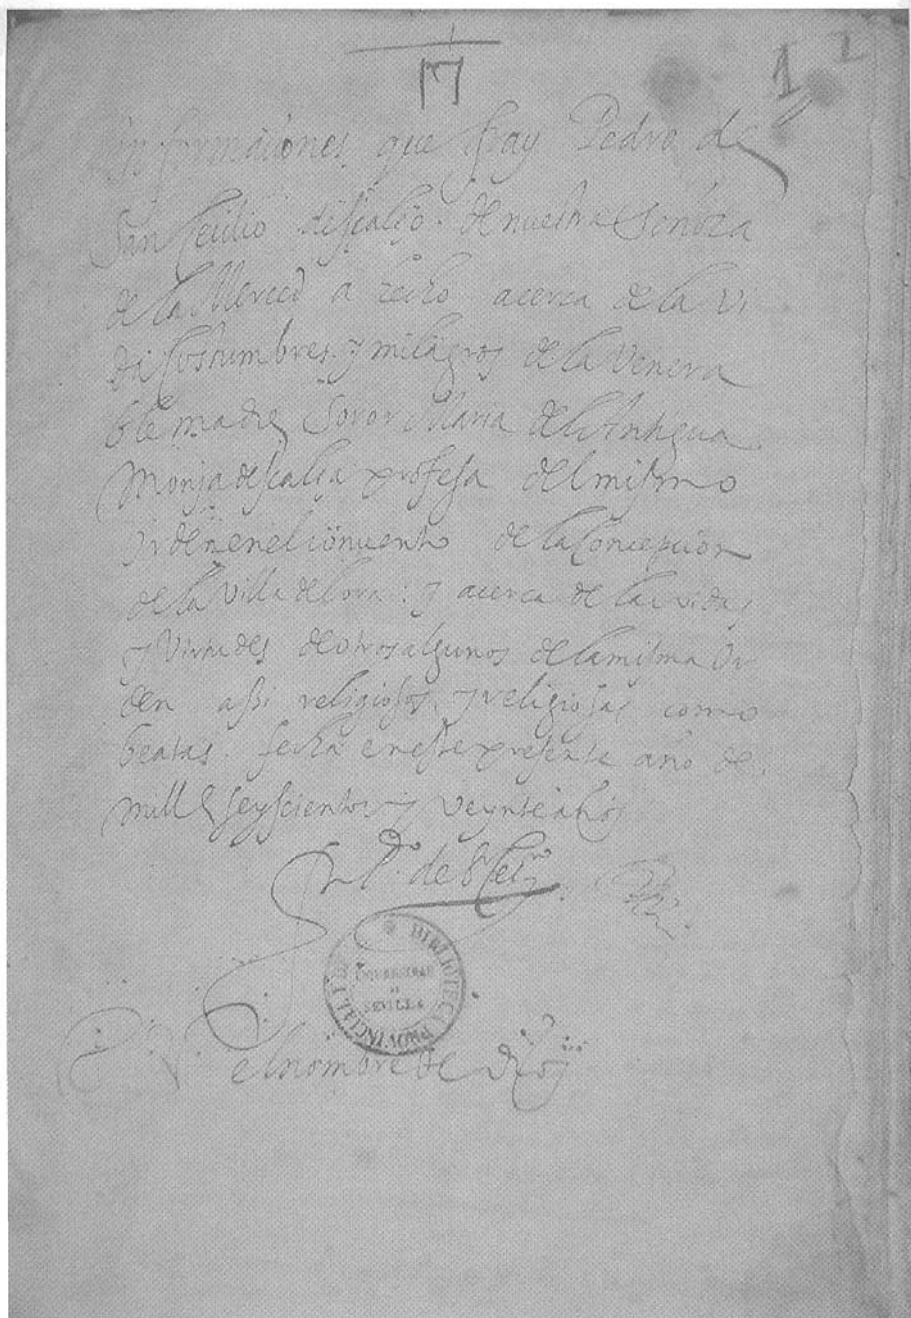 1 2
Informaciones que fray Pedro de
San Cecilio descalço de nuestra Señora
de la Merced a hecho acerca de la vi
da costumbres y milagros de la Venera
ble madre Soror Maria de la Antigua
Monja descalça profesa del mismo
orden en el convento de la Concepcion
de la villa de lora: y acerca de las vidas
y virtudes de otros algunos de la misma or
den assi religiosos y religiosas como
beatas. fecha en este presente año de
mill y seyscientos y veynte años
fr Pº. de S Ceciº
BIBLIOTECA PROVINCIAL
UNIVERSIDAD
DE
SEVILLA
el nombre de dios